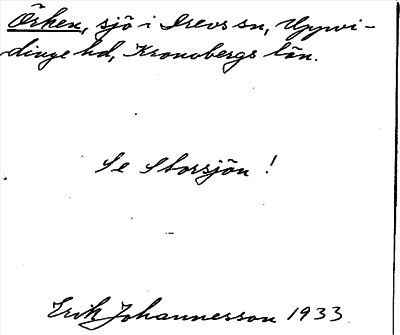 Örken, sjö i Drevs sn, Uppvi-
dinge hd, Kronobergs län.
Se Storsjön !
Erik Johannesson 1933.